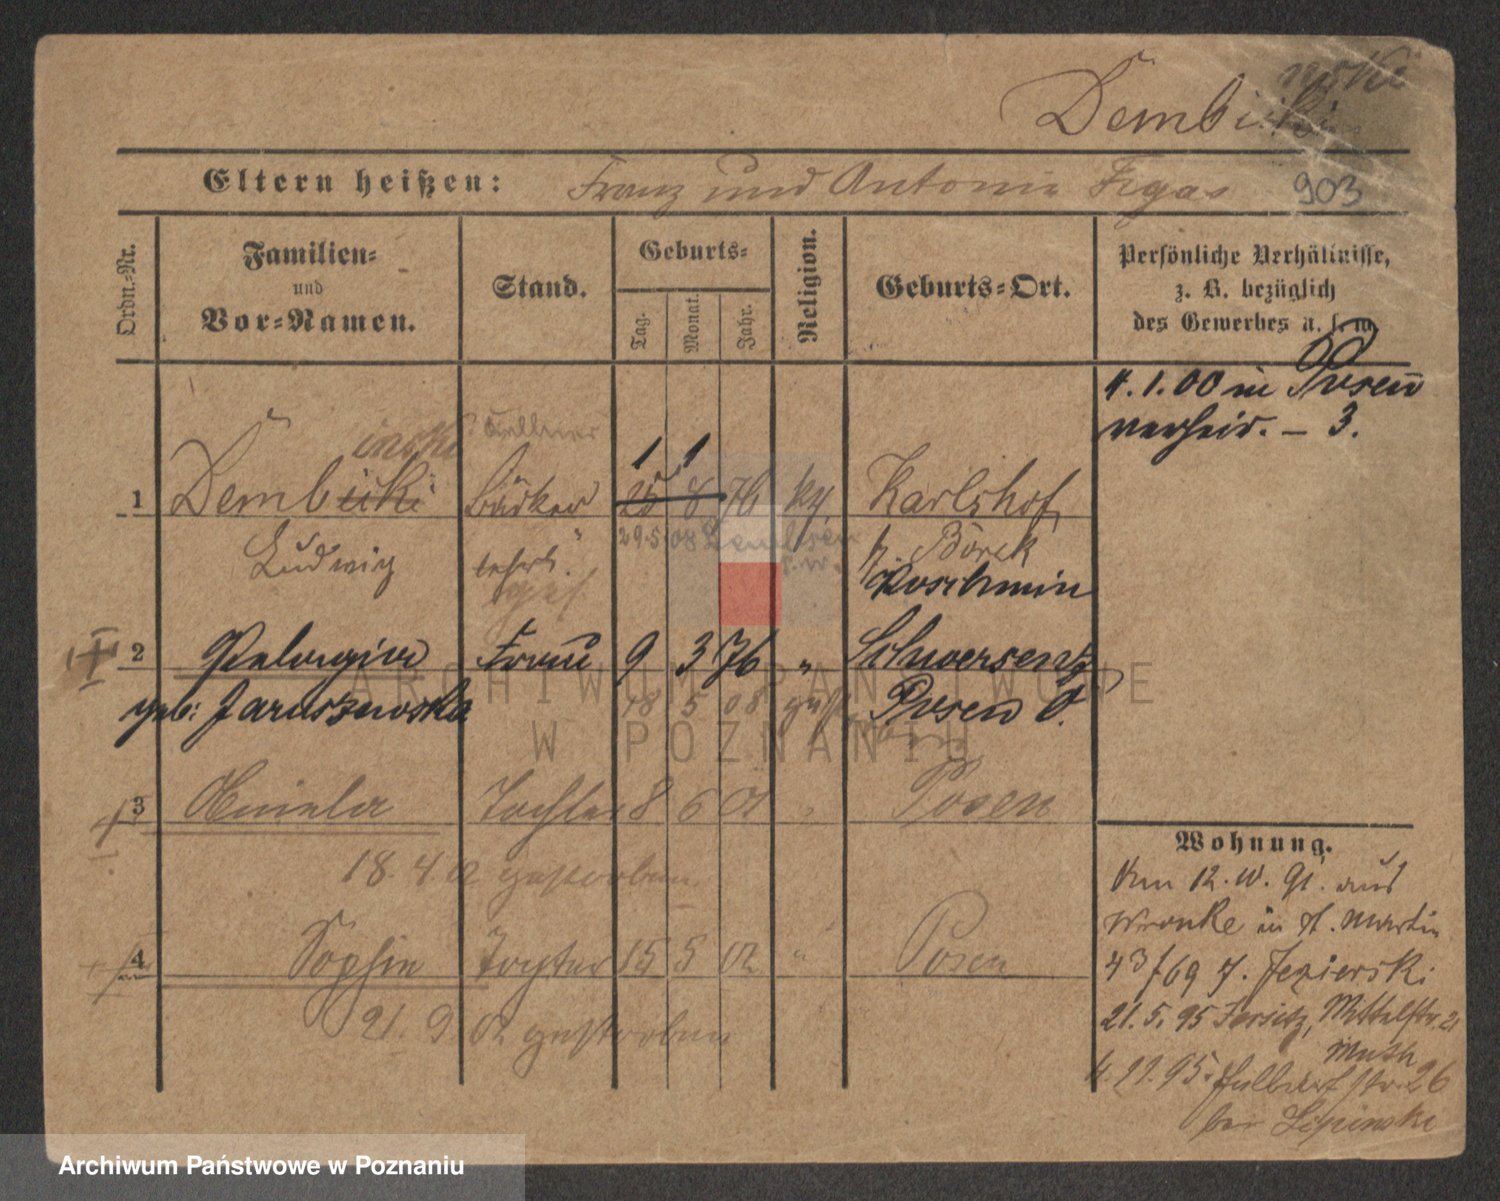 Dembicki
Eltern heißen: Franz und Antonie Figas 903
Ordn.-Nr.
Familien- und Vor-Namen.
Stand.
Geburts-
Tag. Monat. Jahr.
Religion.
Geburts-Ort.
Persönliche Verhältnisse,
z. B. bezüglich
des Gewerbes u. s. w.
4. 1. 00 in Posen
verheir. – 3.
inski Kellner
1 1
1 Dembicki Bäcker 25 8 76 kth. Karlshof
29.5.08
Ludwig lehrl. p. Borek
Koschmin
2 Pelagia Frau 9 3 76 " Schwersenz
geb: Jaruszewska 18 5 08 Posen O.
3 Aniela Tochter 8 6 01 " Posen
18. 4. 02 gestorben
4 Sophie Tochter 15 5 02 " Posen
21. 9. 02 gestorben
Wohnung.
Am 12. 10. 91. aus
Wronke in St. Martin
43/69 J. Jezierski
21. 5. 95 Jersitz, Mittelstr. 21
Muth
4. 11. 95. Halbdorfstr. 26
bei Lipinski
ARCHIWUM PAŃSTWOWE
W POZNANIU
Archiwum Państwowe w Poznaniu